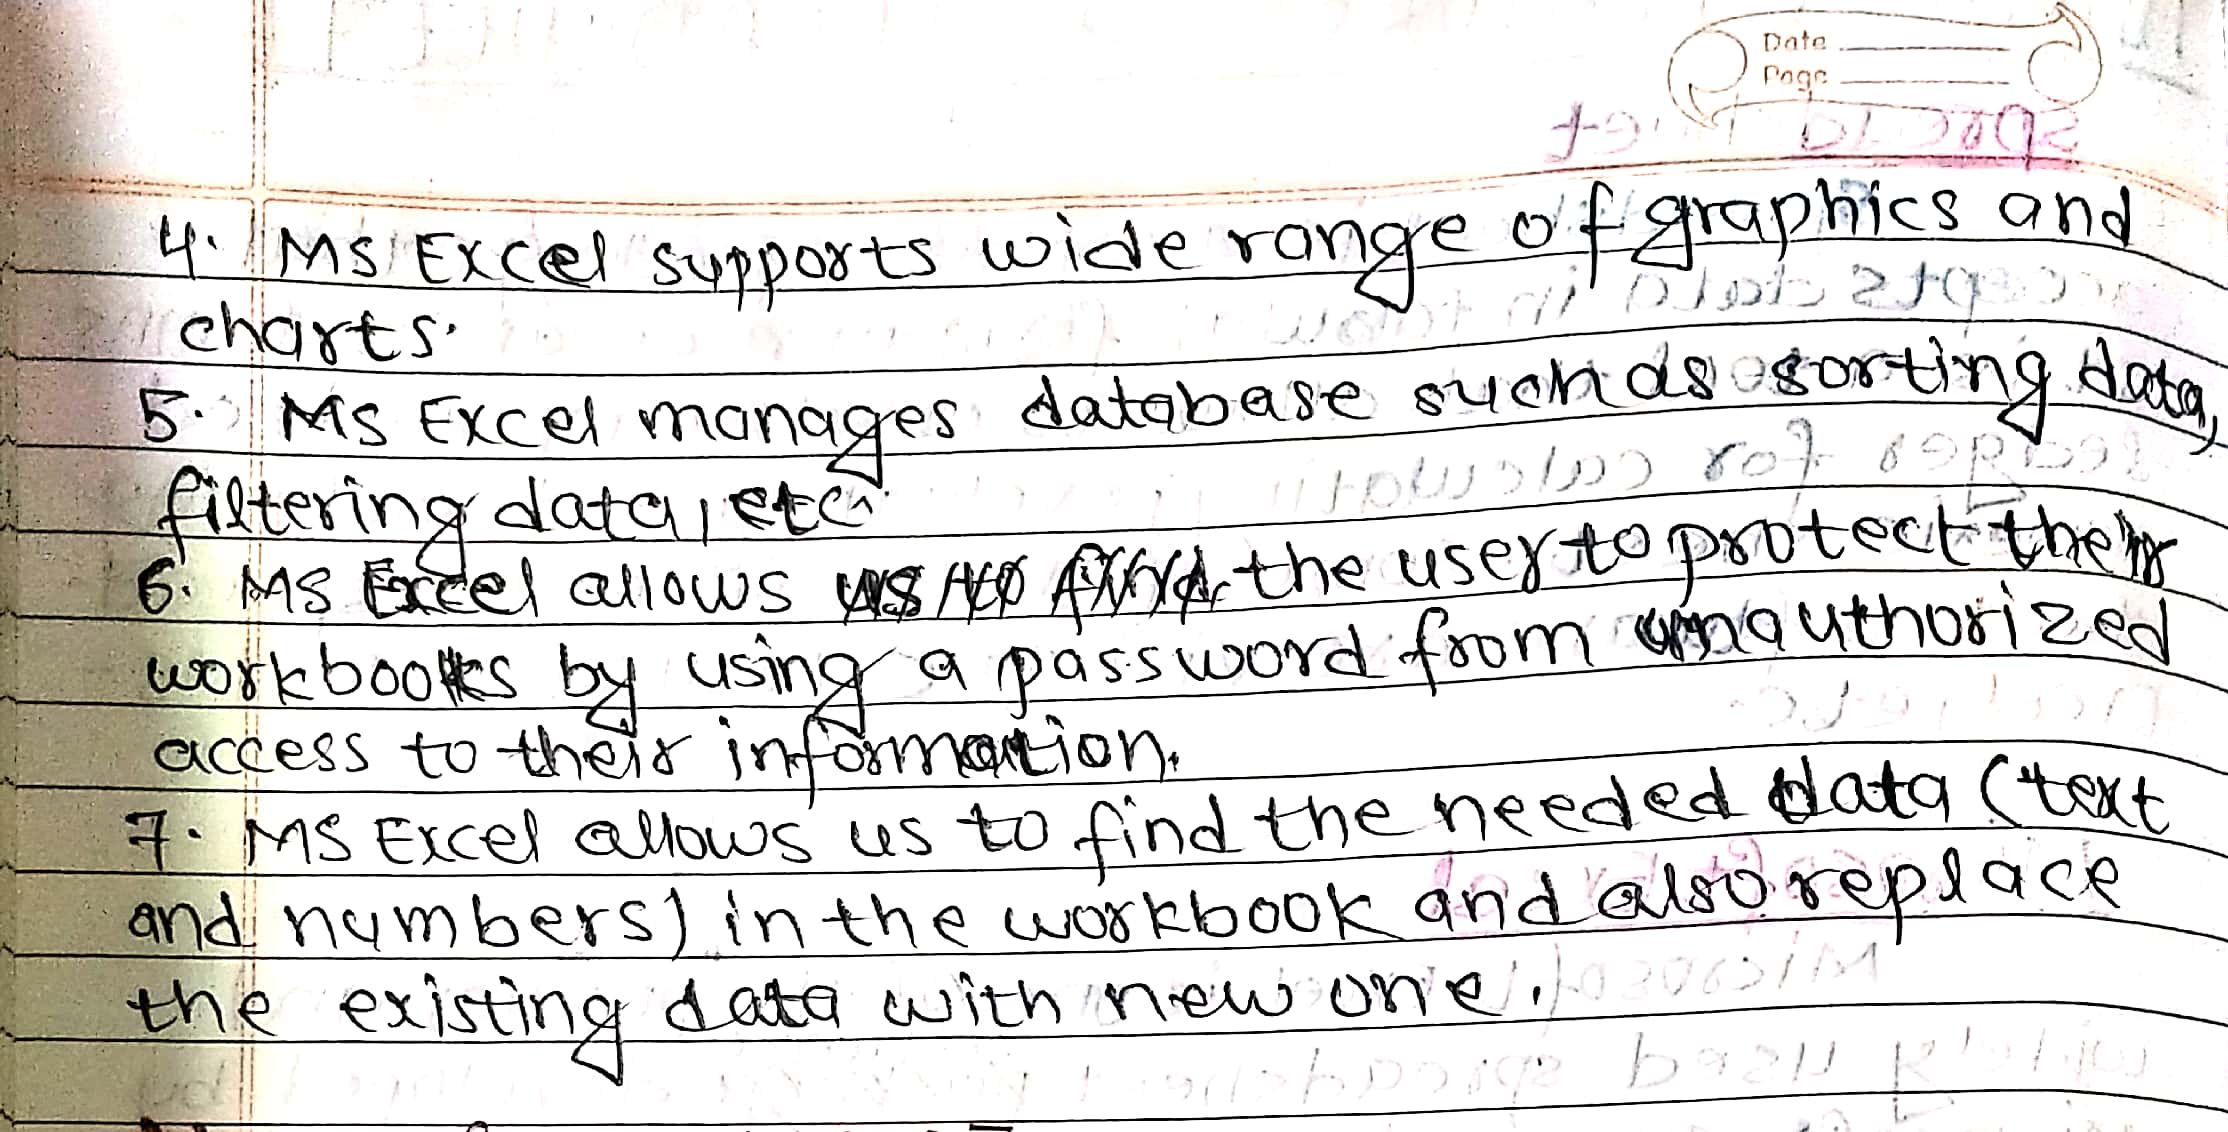 Date
Page
4. MS Excel supports wide range of graphics and
charts.
5. MS Excel manages database such as sorting data,
filtering data, etc.
6. MS Excel allows the user to protect their
workbooks by using a password from unauthorized
access to their information.
7. MS Excel allows us to find the needed data (text
and numbers) in the workbook and also replace
the existing data with new one.